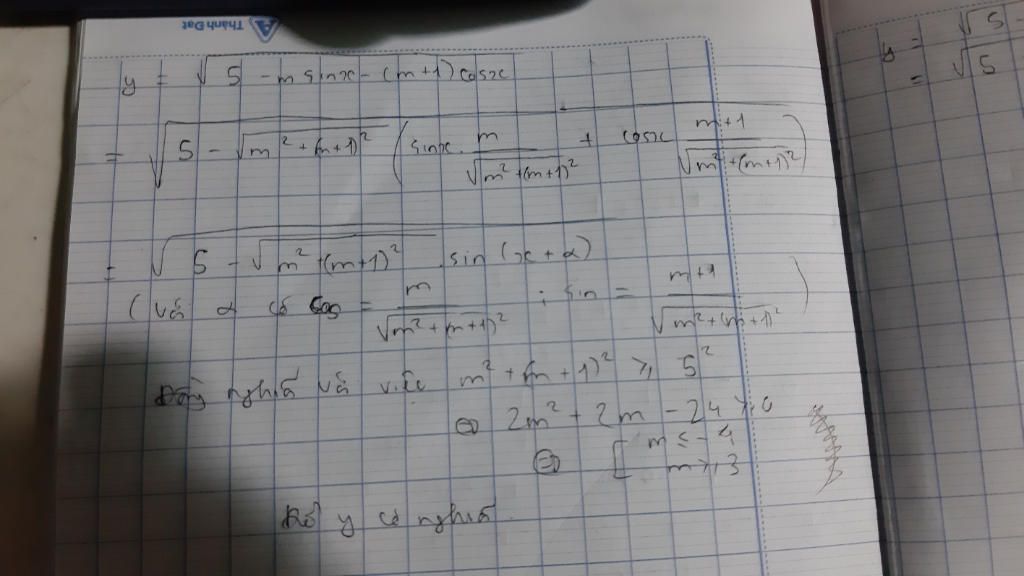 Thành Đạt
y = √(5 - m sinx - (m+1) cosx)
= √(5 - √(m² + (m+1)²) (sinx . m/√(m² + (m+1)²) + cosx m+1/√(m² + (m+1)²)))
= √(5 - √(m² + (m+1)²) . sin (x + α))
(Với α có cos = m/√(m² + (m+1)²) ; sin = m+1/√(m² + (m+1)²))
nghĩ với việc m² + (m+1)² ≥ 5²
⇔ 2m² + 2m - 24 ≥ 0
⇔ [ m ≤ -4
m ≥ 3
y có
y = √5 -
= √5